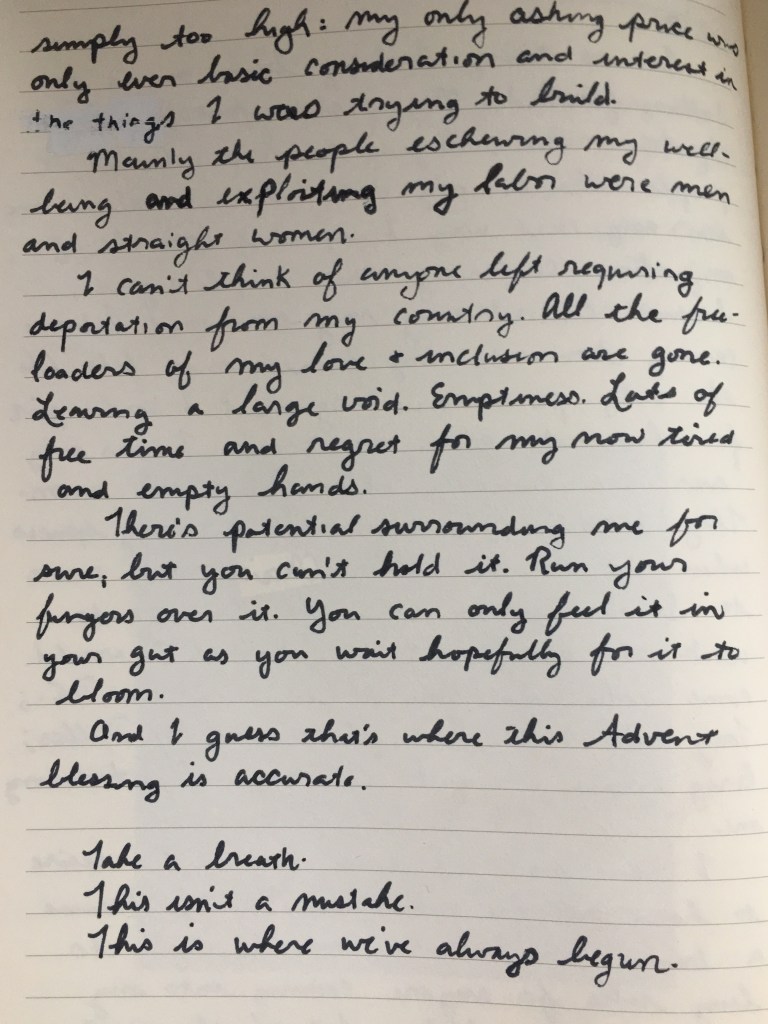 simply too high: my only asking price was
only ever basic consideration and interest in
the things I was trying to build.
Mainly the people eschewing my well-
being and exploiting my labor were men
and straight women.
I can't think of anyone left requiring
deportation from my country. All the free-
loaders of my love + inclusion are gone.
Leaving a large void. Emptiness. Lots of
free time and regret for my now tired
and empty hands.
There's potential surrounding me for
sure, but you can't hold it. Run your
fingers over it. You can only feel it in
your gut as you wait hopefully for it to
bloom.
And I guess that's where this Advent
blessing is accurate.
Take a breath.
This isn't a mistake.
This is where we've always begun.